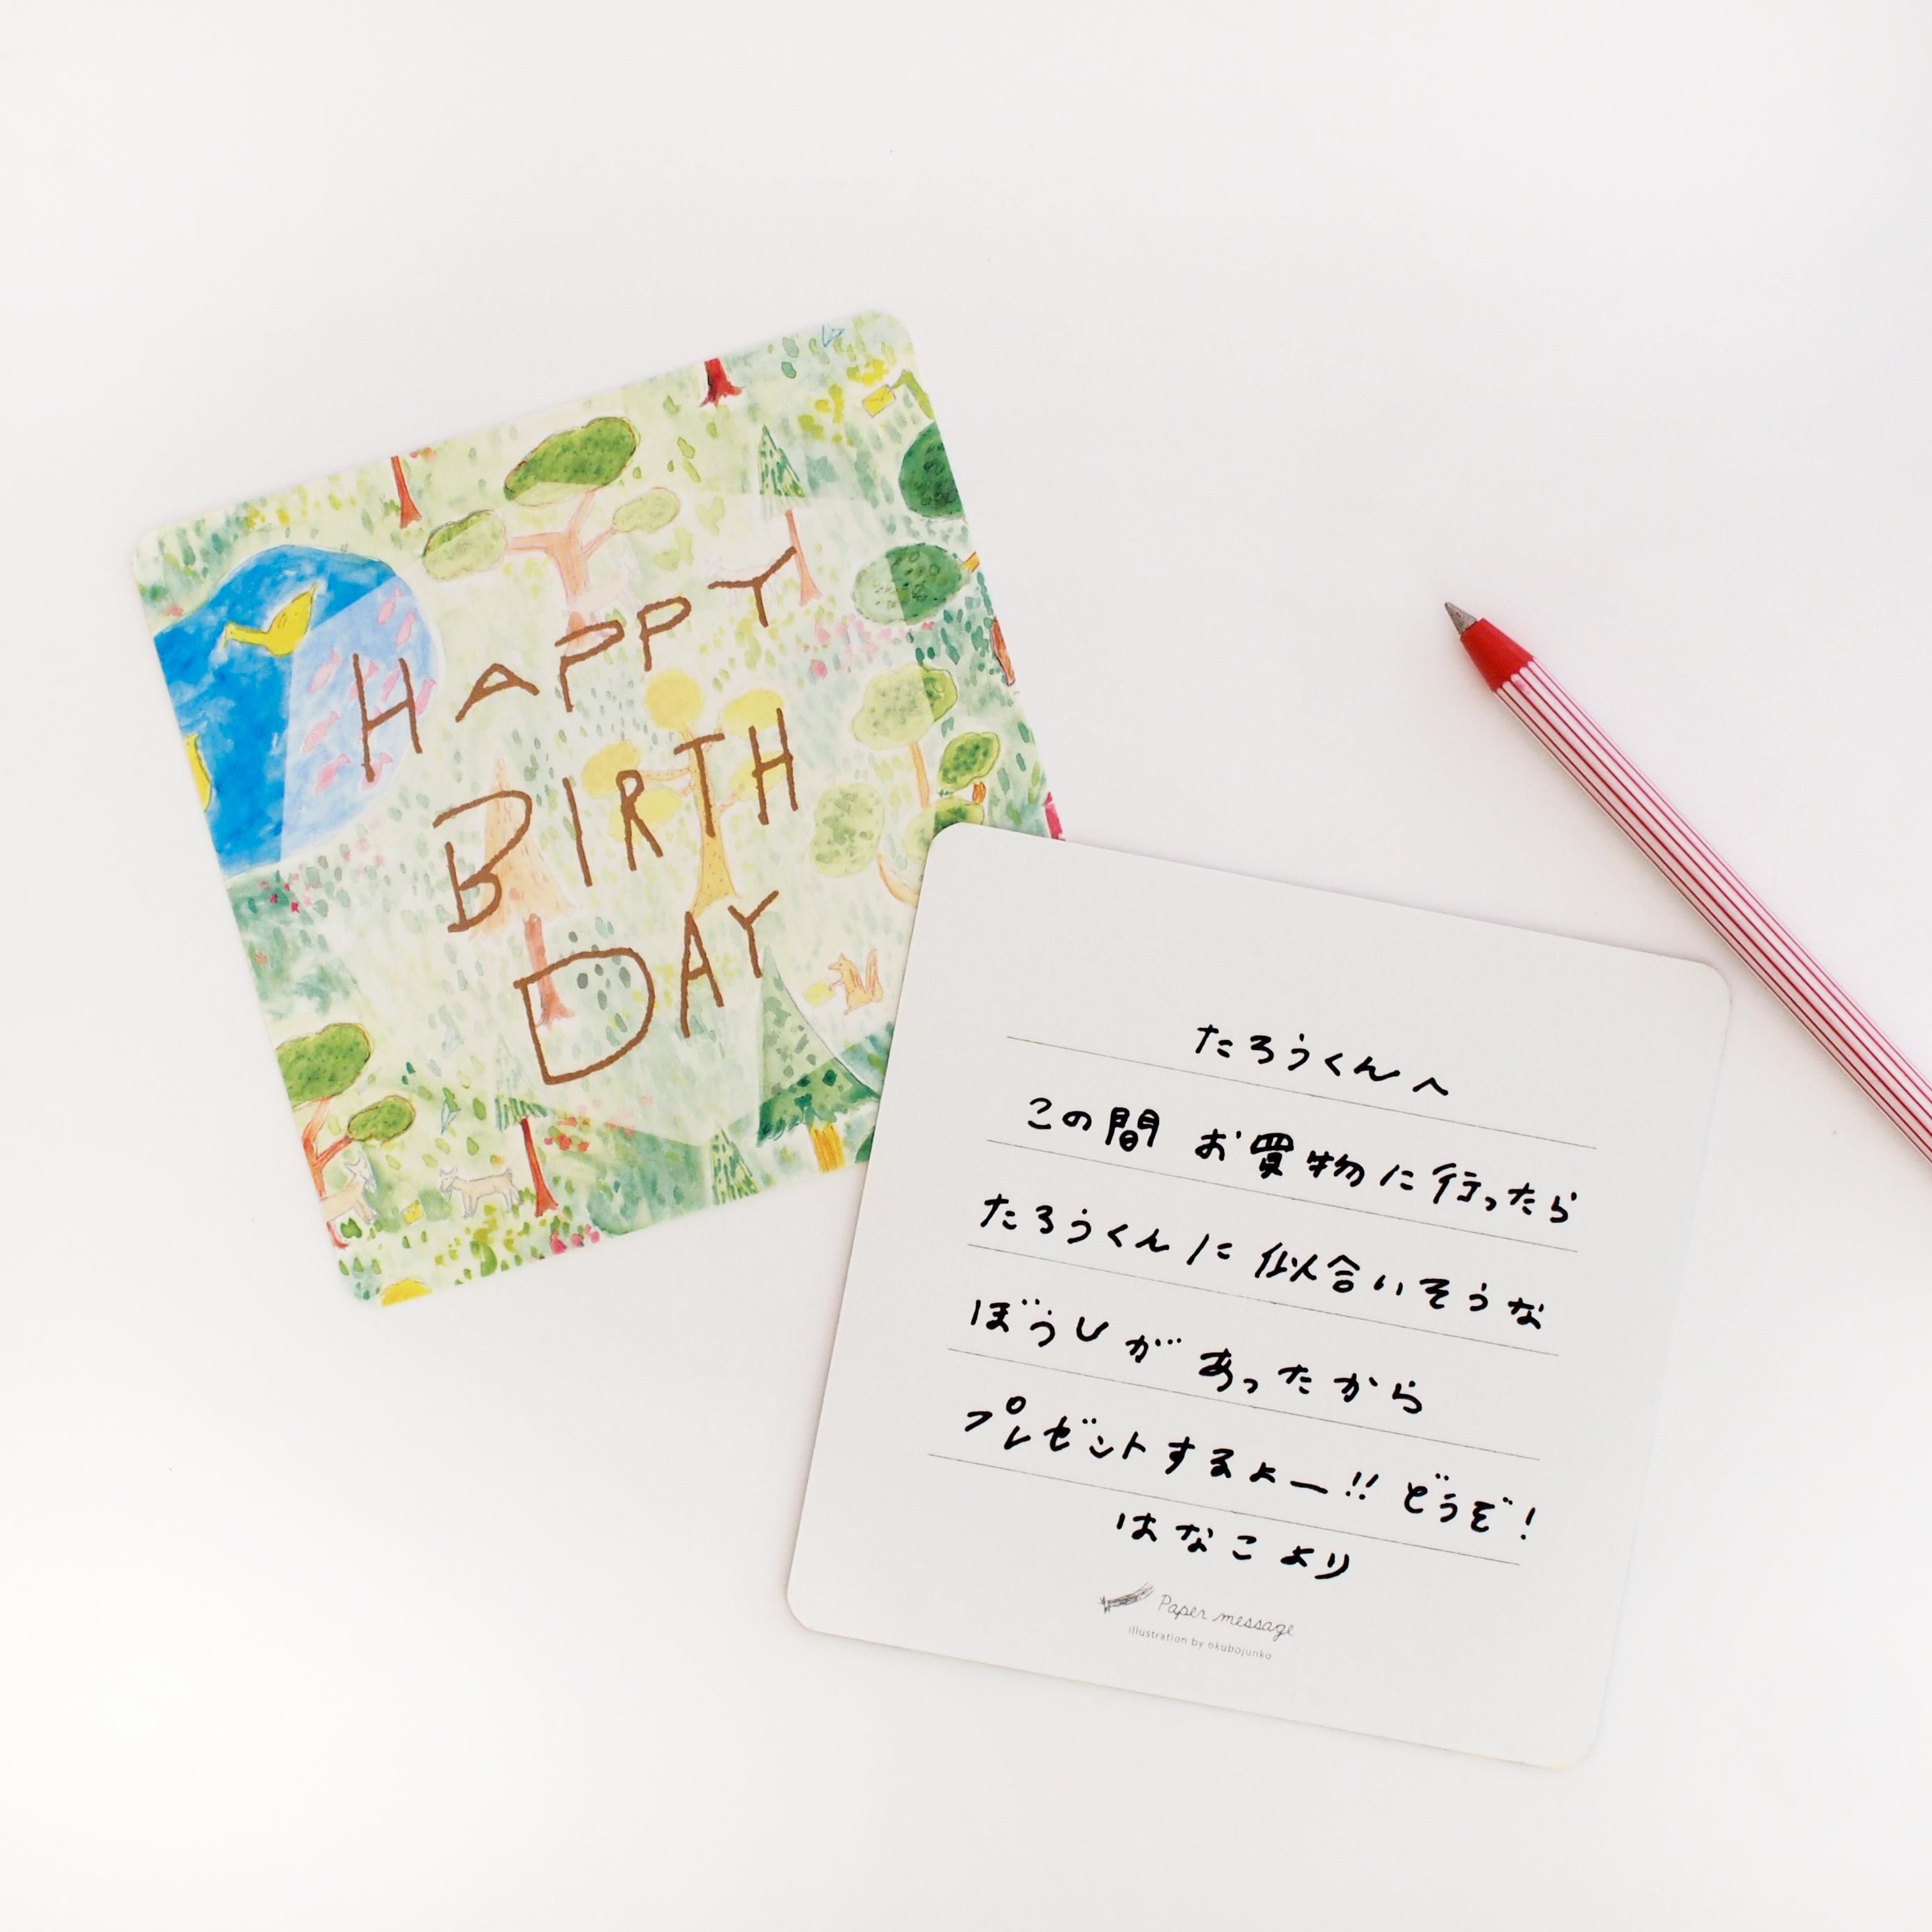 HAPPY
BIRTH
DAY
たろうくんへ
この間 お買物に行ったら
たろうくんに似合いそうな
ぼうしがあったから
プレゼントするよー!! どうぞ!
はなこより
Paper message
illustration by okubojunko